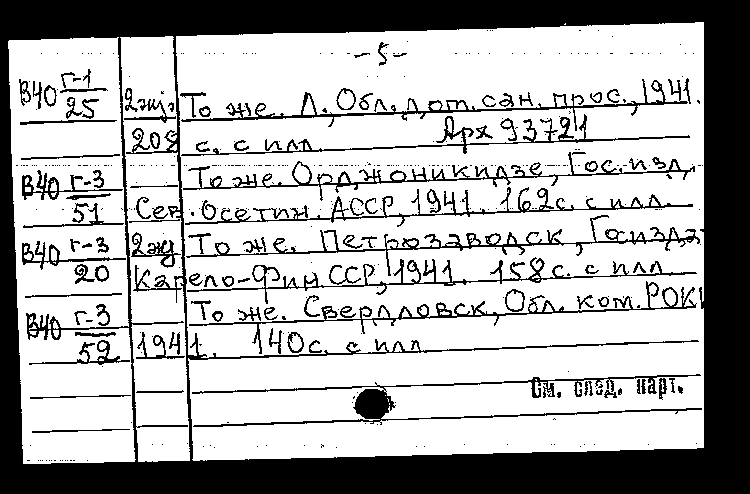 -5-
В40 г-1/25 2экз. То же. Л., Обл. д. от. сан. прос., 1941.
208 с. с илл. Арх 93721
В40 г-3/51 То же. Орджоникидзе, Гос. изд.
Сев. Осетин. АССР, 1941. 162с. с илл.
В40 г-3/20 2экз То же. Петрозаводск, Госизда
Карело-Фин. ССР, 1941. 158с. с илл.
В40 г-3/52 То же. Свердловск, Обл. ком. РОКК
1941. 140с. с илл.
См. след. карт.